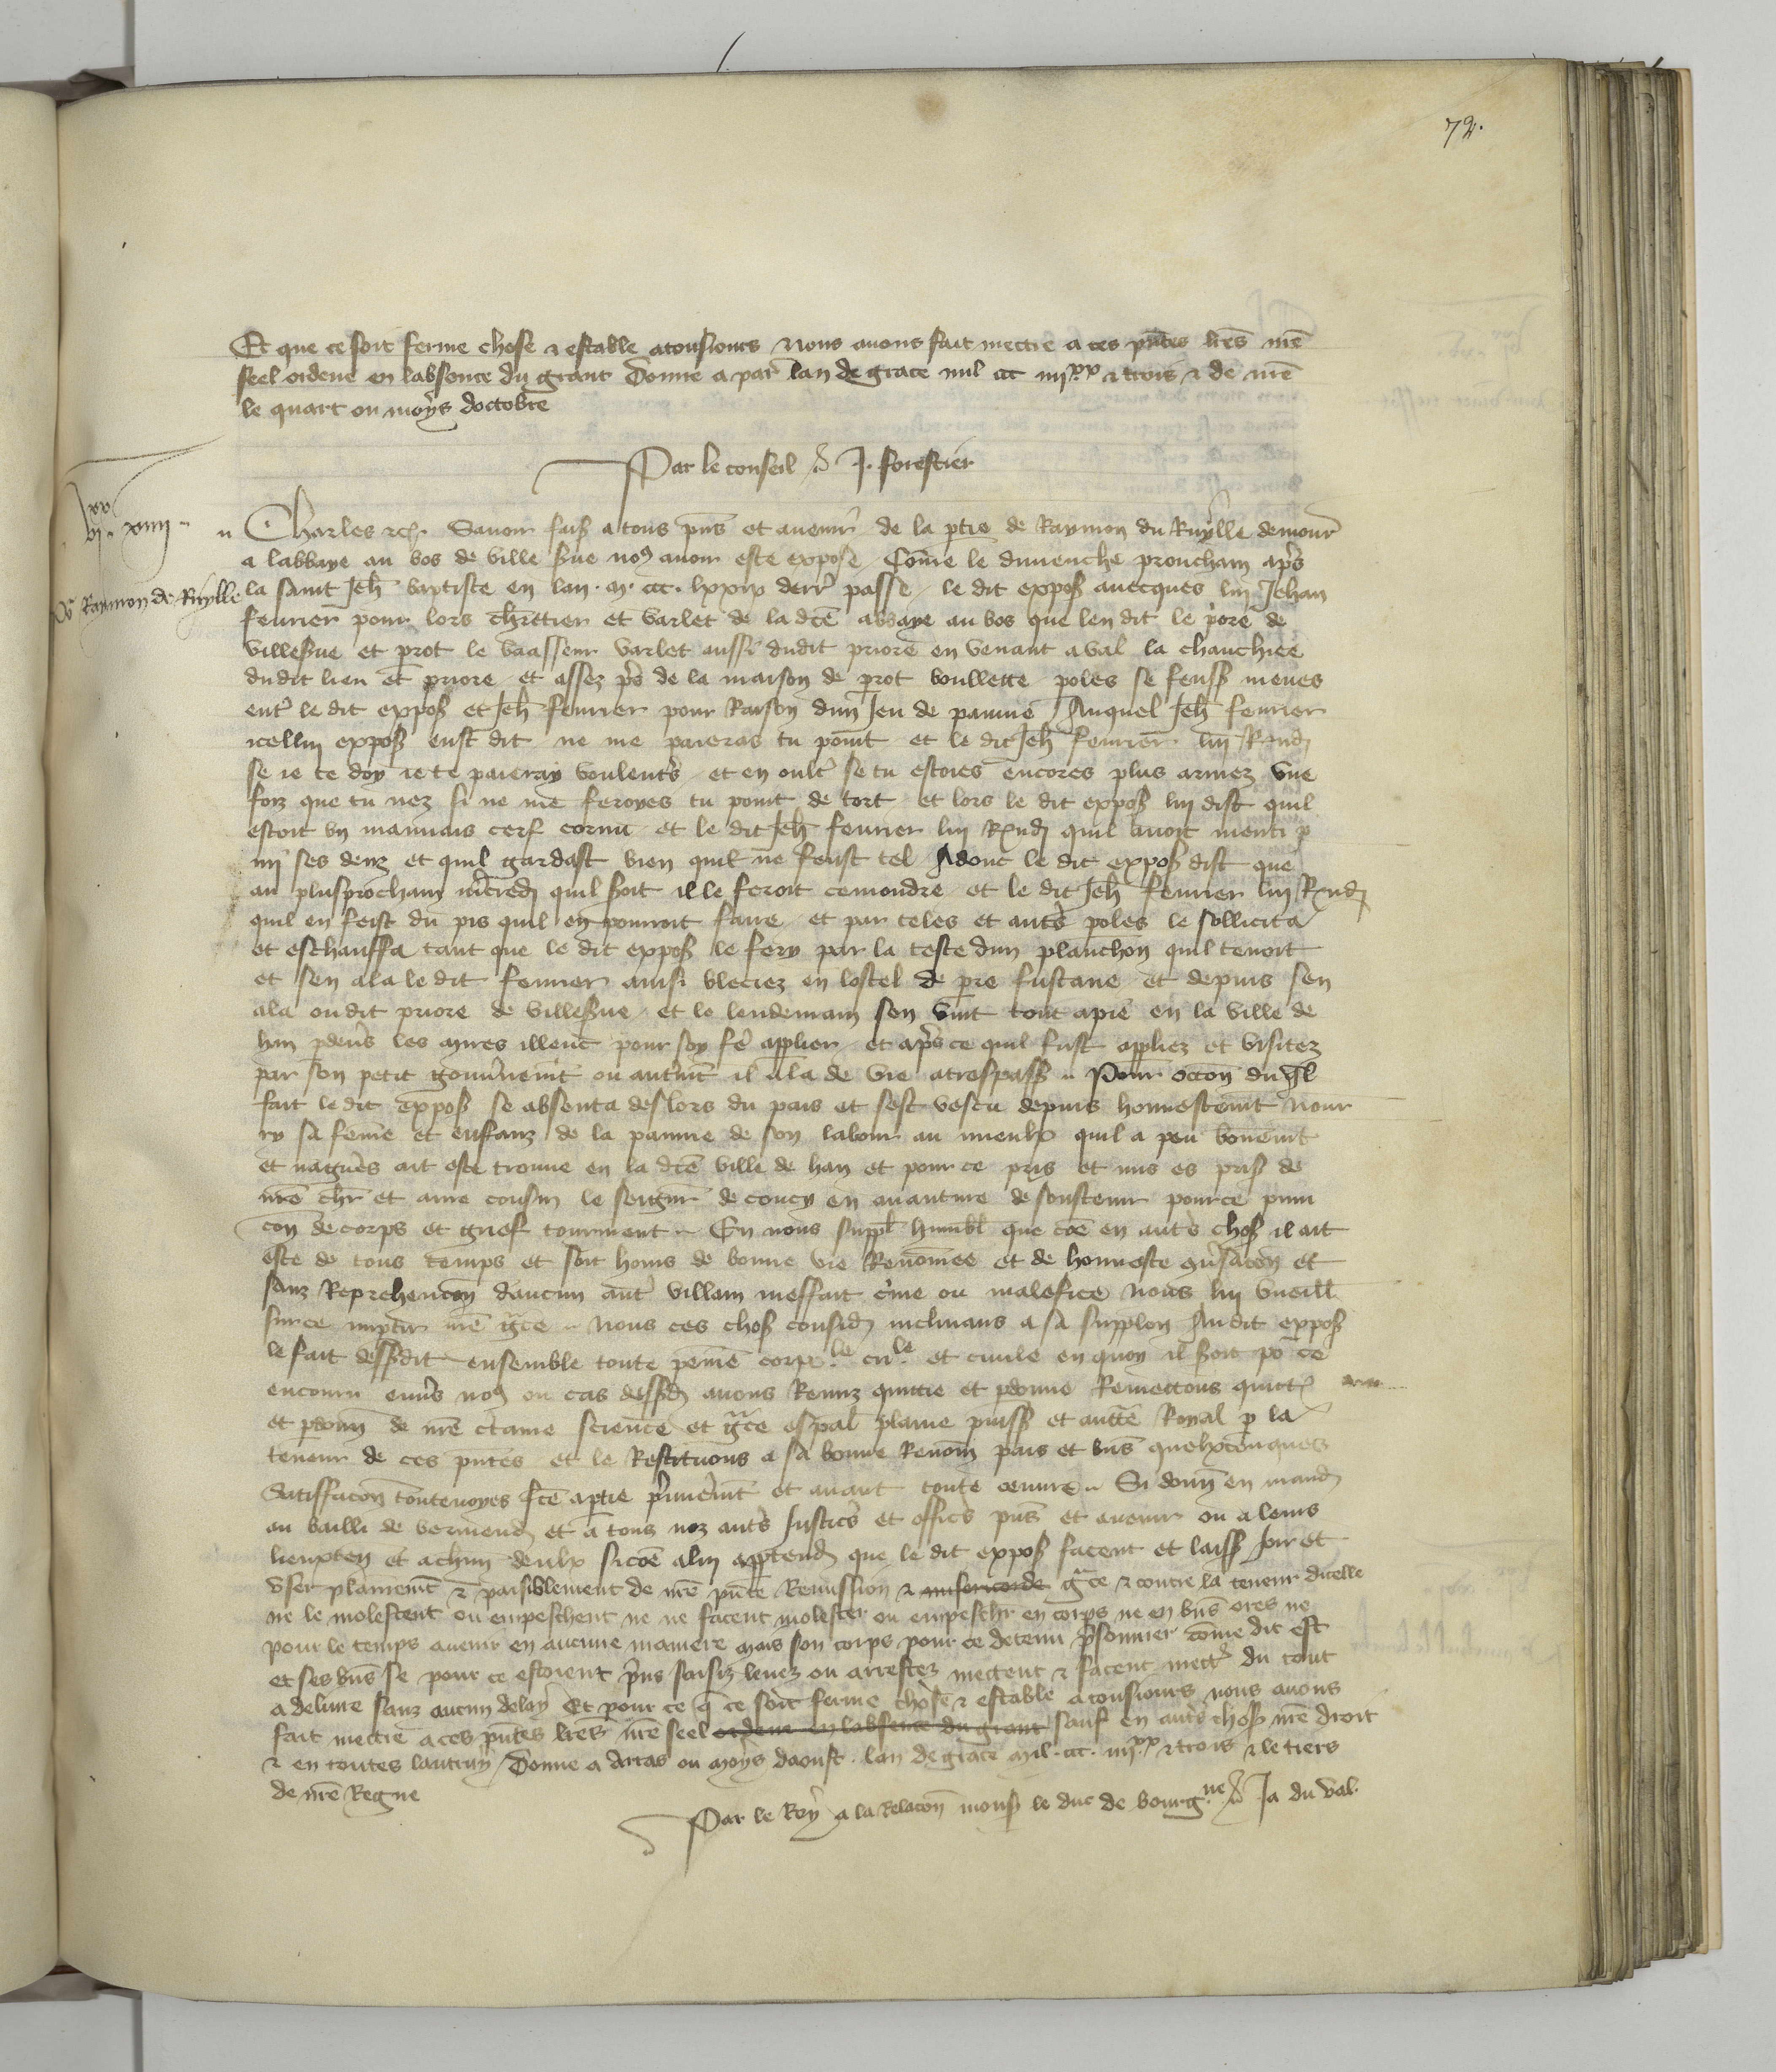 72.
Et que ce soit ferme chose & estable atousiours Nous auons fait mectre a ces pñtes lr̃es nr̃e
seel ordene en labsence du grant Donne a par̃ lan de grace mil ccc iiij.xx & trois & de nr̃e
le quart ou moys doctobre
Par le conseil J. forestier
xx
vj. xiiij
Charles &c. Sauoir fais̃ a tous pñs et auenir de la p̃tie de Raymon du Ruylle demour̃
a labbaye au bos de ville Sue noꝰ auoir este expose Cõme le dimenche prouchain ap̃s
Raymon de Ruylle
la saint Jeh̃ baptiste en lan . m . ccc . lxxix derr̃ passe le dit expoß auecques lui Jehan
feurier pour lors ch̃retier et varlet de la dc̃e abbaye au bos que len dit le p̃ore de
villeSue et perot le vaasseur varlet aussi dudit priore en venant aval la chauchiee
dudit lieu et priore et assez p̃s de la maison de perot boullette p̃oles se feuss̃ meues
ent̃ le dit expoß et Jeh̃ feurier pour Raison dun Jeu de paume Auquel Jeh̃ feurier
icellui expoß eust dit ne me paieras tu point et le dit Jeh̃ feurier lui Rñdi
se ie te doy ie te paieray voulent̃s et en oult̃ se tu estoies encores plus armez vne
foiz que tu nez si ne me feroyes tu point de tort et lors le dit expoß lui dist quil
estoit vn mauuais cerf cornu et le dit Jeh̃ feurier lui Rñdi quil auoit menti p̃
mi ses denz et quil gardast bien quil ne feust tel Adonc le dit expoß dist que
au plusprochain m̃credi quil soit il le feroit cemondre et le dit Jeh̃ feurier lui Rñdi
quil en feist du pis quil en pourroit faire et par teles et aut̃s p̃oles le sollicita
et eschauffa tant que le dit expoß le fery par la teste dun planchon quil tenoit
et sen ala le dit feurier ainsi bleciez en lostel de p̃re fustane et depuis sen
ala oudit priore de villeSue et le lendemain sen vint tout a pie en la ville de
han p̃deũs les mires illeuc pour soy fẽ applier et ap̃s ce quil fust appliez et visitez
par son petit gouũnem̃t ou autrem̃t il ala de vie a trespass̃ Pour occõn du q̃l
fait le dit expoß se absenta deslors du pais et sest vescu depuis honnestem̃t nour
ry sa fem̃e et enffanz de la paine de son labour au mieulx quil a peu bonnem̃t
et nagueres ait este trouue en la dc̃e ville de han et pour ce pris et mis es pris̃ de
nr̃e ch̃r et ame cousin le seigneur de coucy en auanture de soustenir pource puni
cõn de corps et grief tourment En nous suppl̃ humbl̃ que cõe en aut̃s choß il ait
este de tous temps et soit homs de bonne vie Renom̃ee et de honneste cõũsacõn et
sanz Reprehencõn daucun aut̃ villain meffait c̃me ou malefice Nous lui vueill̃
sur ce imp̃tir nr̃e gr̃ce Nous ces choß consid̃ inclinans a sa supplicõn Audit expoß
le fait dessusdit ensemble toute peine corp.le cri.le et ciuile en quoy il soit po͂ ce
encouru enũs noꝰ ou cas dessusd̃ auons Remiz quictie et p̃donne Remectons quict̃
et p̃donñ de nr̃e c̃taine science et gr̃ce esp̃al plaine puiss̃ et auct̃e Royal p̃ la
teneur de ces pñtes et le Restituons a sa bonne Renom̃ pais et biens quelxconques
Satisfacõn toutteuoyes fc̃e a p̃tie p̃mierem̃t et auant toute oeuure Si donñ en mand̃
au bailli de vermend̃ et a tous noz aut̃s Justic̃s et offic̃s pñs et auenir ou a leurs
lieuxten̄ et a ch̃un deulx si cõe a lui app̃tendr̃ que le dit expoß facent et laiss̃ joir et
vser plainem̃t & paisiblement de nr̃e pñte Remission & misericorde gr̃ce & contre la teneur dicelle
ne le molestent ou empeschent ne ne facent molester ou empescher en corps ne en biens ores ne
pour le temps auenir en aucune maniere mais son corps pour ce detenu p̃sonnier cõme dit est
et ses biens se pour ce estoient p̃ns saisiz leuez ou arrestez mectent & facent mect̃ du tout
a deliure sanz aucun delay Et pour ce q̃ ce soit ferme chose & estable a tousiours nous auons
fait mectre a ces pñtes lr̃es nr̃e seel ordene en labsence du grant sauf en aut̃s choß nr̃e droit
& en toutes lautruy Donne a Arras ou moys daoust lan de grace mil . ccc . iiij.xx & trois & le tiers
de nr̃e Regne
Par le Roy a la Relacõn mons̃ le duc de bourg.ne Ja du val.